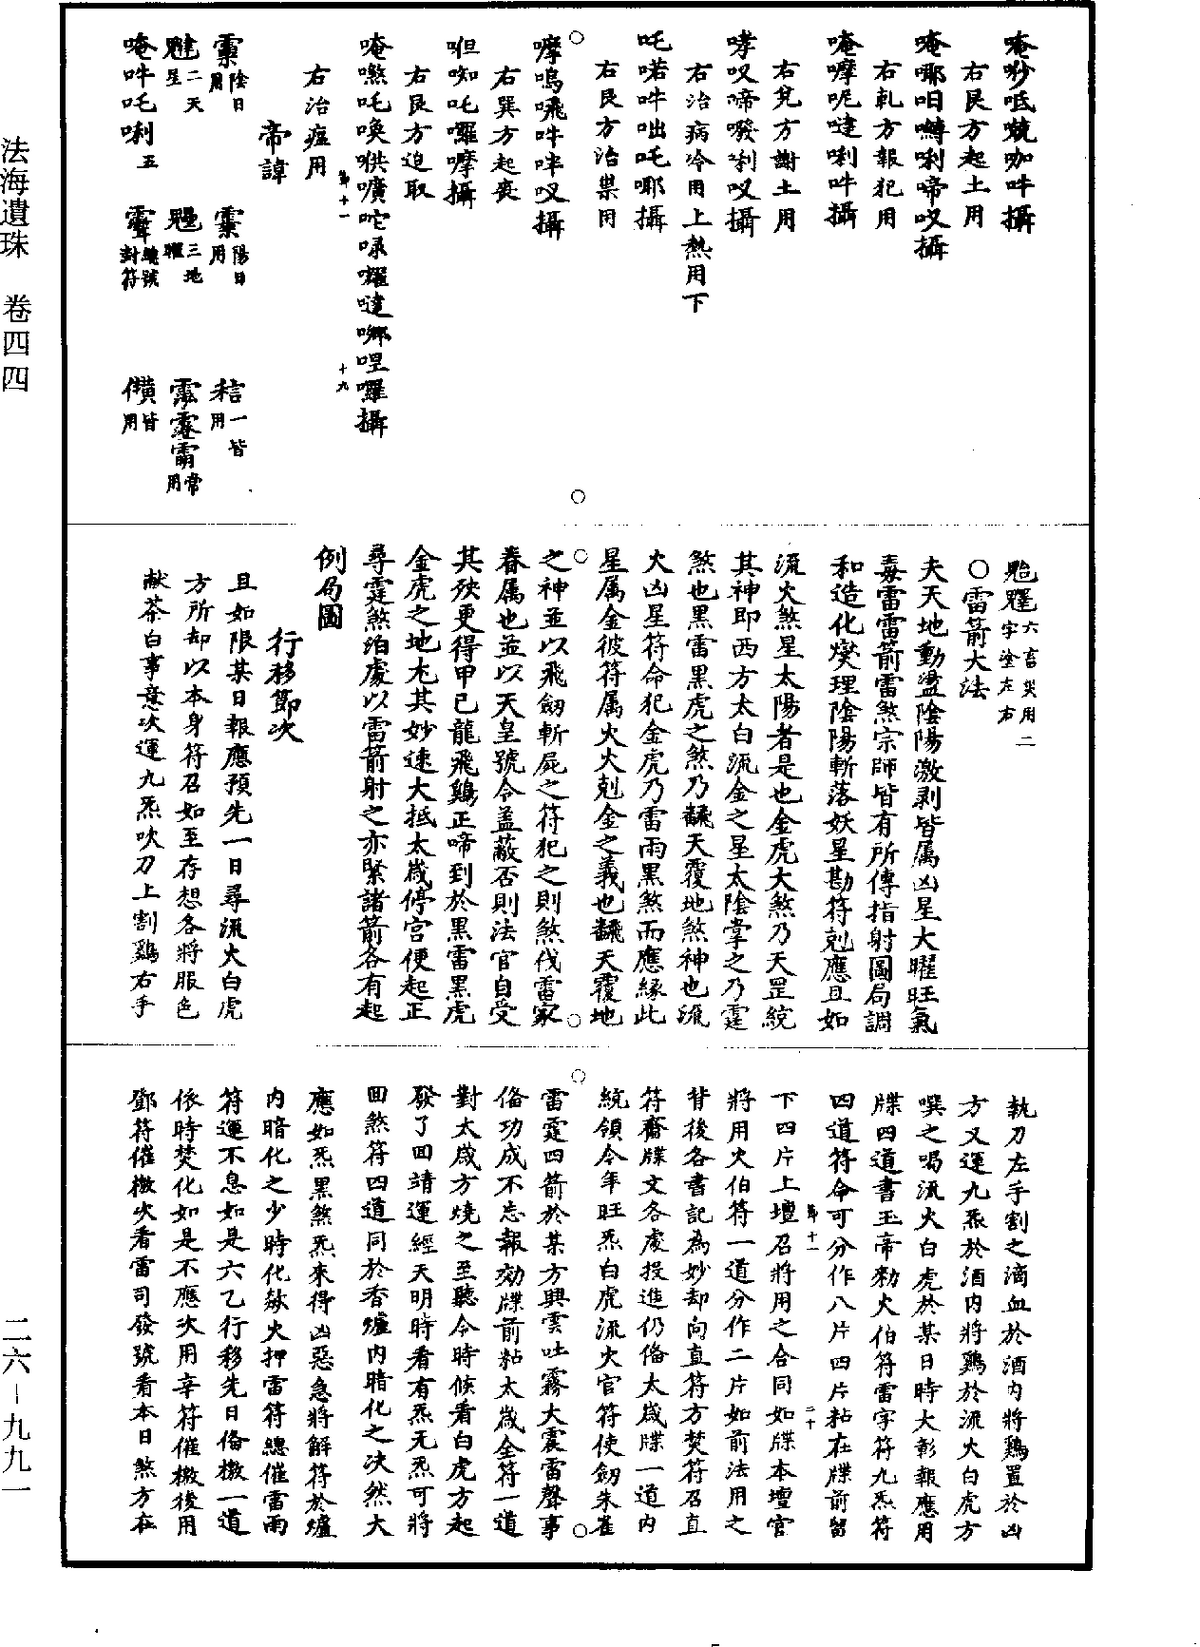 唵吵呧㖀咖吽攝
右艮方起土用
唵㖿呬囀唎啼叹攝
右乹方報犯用
唵嚤呢噠唎吽攝
右兊方謝土用
哮叹啼㗶唎叹攝
右治病冷用上熱用下
吒喏吽咄吒㖿攝
右艮方治祟用
嚤嗚㗙吽哶叹攝
右巽方起喪
呾㗌吒囉嚤攝
右艮方追取
右治瘟用
第十一
十九
帝諱
陰日用
陽日用
一皆用
二天星
三地曜
常用
唵吽吒唎五
總號對符
皆用
六畜災用二字塗左右
○雷箭大法
夫天地動盪陰陽激剥皆属凶星大曜旺氣
毒雷雷箭雷煞宗師皆有所傳指射圖局調
和造化燮理陰陽斬落妖星勘符剋應且如
流火煞星太陽者是也金虎大煞乃天罡統
其神即西方太白流金之星太陰掌之乃霆
煞也黑雷黑虎之煞乃飜天覆地煞神也流
火凶星符命犯金虎乃雷雨黑煞而應緣此
星属金彼符属火火剋金之義也飜天覆地
之神並以飛劒斬屍之符犯之則煞伐雷家
眷属也並以天皇號令蓋蔽否則法官自受
其殃更得甲巳龍飛鷄正啼到於黑雷黑虎
金虎之地尤其妙速大抵太歲停宮便起正
尋霆煞泊處以雷箭射之亦緊諸箭各有起
例局圖
行移節次
且如限某日報應預先一日尋流火白虎
方所却以本身符召如至存想各將服色
献茶白事意次運九炁吹刀上割鷄右手
執刀左手割之滴血於酒内將鷄置於凶
方又運九炁於酒内將鷄於流火白虎方
噀之喝流火白虎於某日時大彰報應用
牒四道書玉帝勑火伯符雷字符九炁符
四道符命可分作八片四片粘在牒前留
下四片上壇召將用之合同如牒本壇官
第十一
二十
將用火伯符一道分作二片如前法用之
背後各書記為妙却向直符方焚符召直
符賫牒文各處投進仍俻太歲牒一道内
統領今年旺炁白虎流火官符使劒朱雀
雷霆四箭於某方興雲吐霧大震雷聲事
俻功成不忘報効牒前粘太歲全符一道
對太歲方燒之至聽令時候看白虎方起
發了回靖運經天明時看有炁无炁可將
回煞符四道同於香爐内暗化之决然大
應如炁黑煞炁來得凶惡急將解符於爐
内暗化之少時化欻火押雷符總催雷雨
符運不息如是六乙行移先日俻檄一道
依時焚化如是不應次用辛符催檄後用
鄧符催檄次看雷司發號看本日煞方在
法海遺珠　卷四四
二六－九九一